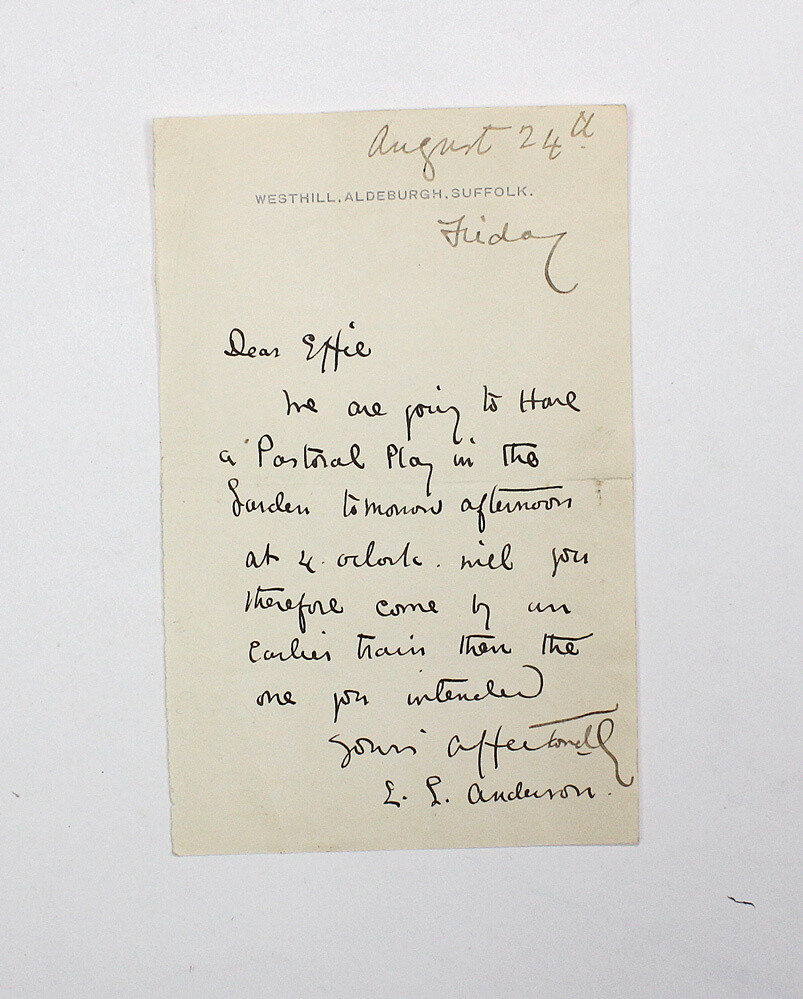 August 24th
WESTHILL, ALDEBURGH, SUFFOLK.
Friday
Dear Effie
We are going to Have
a Pastoral Play in the
Garden tomorrow afternoon
at 4. oclock. will you
therefore come by an
Earlier train then the
one you intended
Yours affectionately
E. G. Anderson.